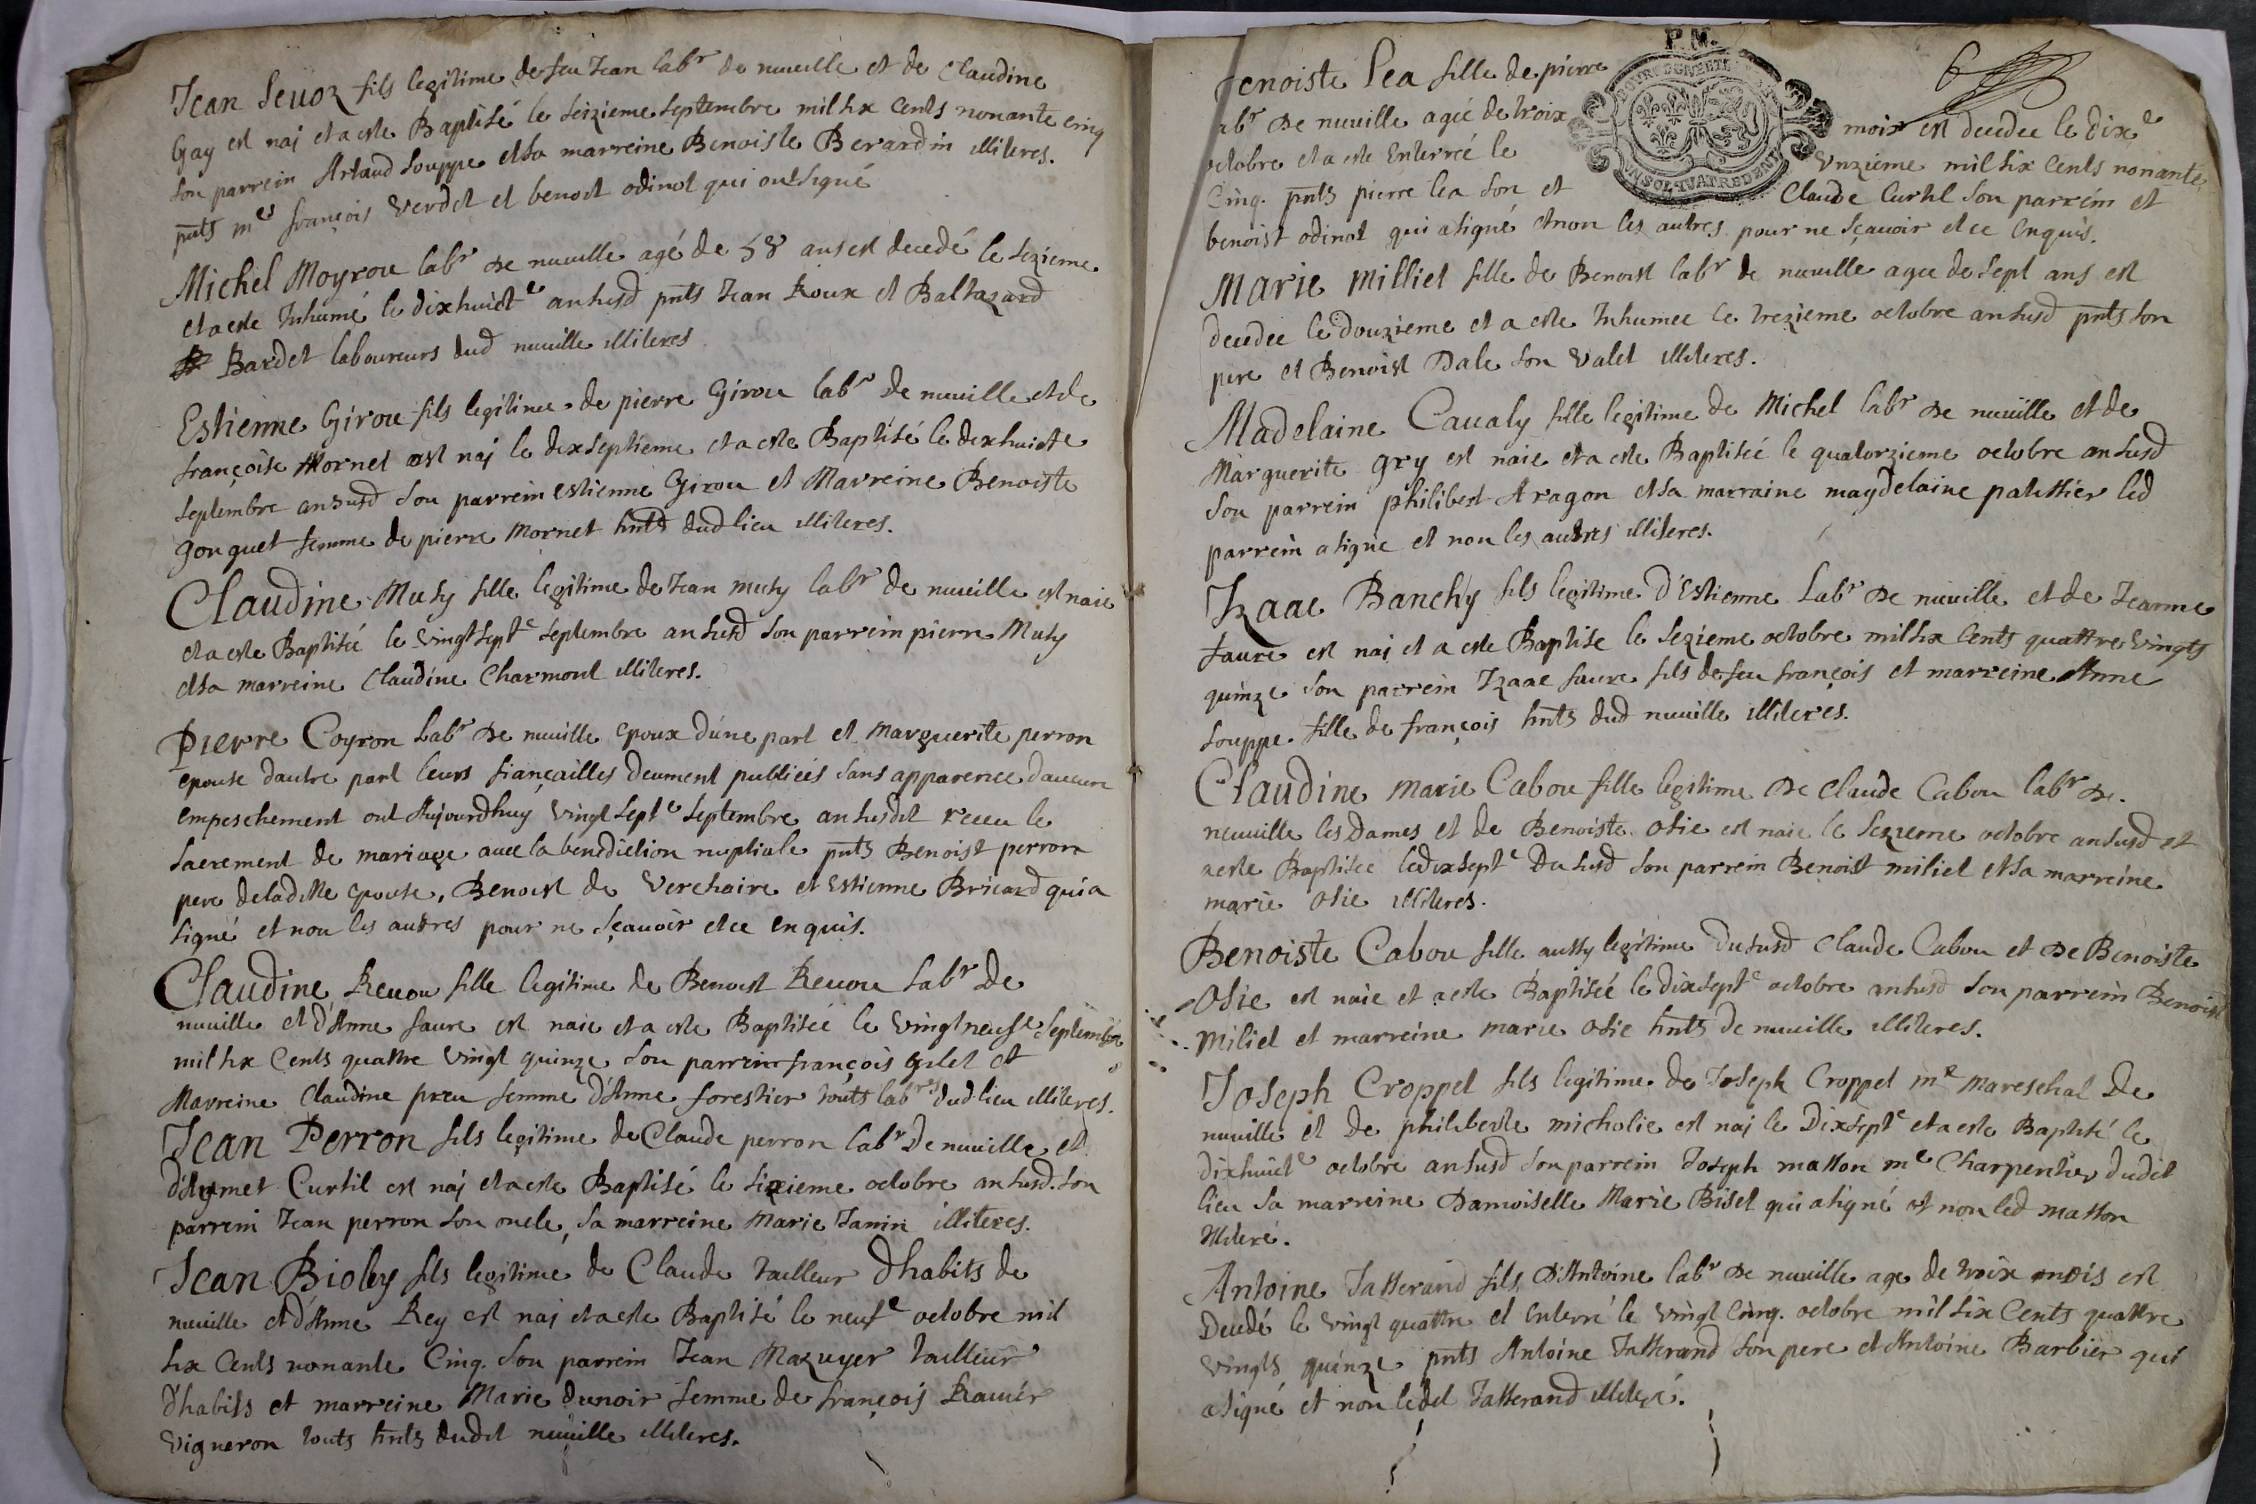 Jean Sevoz fils legitime de feu Jean lab.r de nuuille et de Claudine
Gay est naj et a este Baptisé le seizieme septembre mil six cents nonante cinq
son parrein Artaud Souppe et sa marreine Benoiste Berardin illiteres.
pnts m.e françois Verdet et benoit odinot qui ont signé
Michel Moyrou lab.r de nuuille agé de 58 ans est decedé le sezieme
et a este Inhumé le dixhuict.e an susd pnts Jean Roux et Baltazard
Bardet laboureurs dud nuuille illiteres
Estienne Girou fils legitime de pierre Girou lab.r de nuuille et de
françoise Mornet est naj le dixseptieme et a este Baptisé le dixhuicte
septembre an susd son parrein estienne Girou et Marreine Benoiste
Gonguet femme de pierre Mornet hnts dud lieu illiteres.
Claudine Muty fille legitime de Jean muty lab.r de nuuille est naie
et a este Baptisée le vingtsept.e septembre an susd son parrein pierre Muty
et sa marreine Claudine Charmont illiteres.
Pierre Coyron Lab.r de nuuille epoux d'une part et marguerite perron
epouse dautre part leurs fiançailles deument publiées sans apparence daucun
empeschement ont Aujourdhuy vingt sept.e septembre an susdit receu le
sacrement de mariage auec la benediction nuptiale pnts Benoist perron
pere de laditte epouse, Benoist de Verchaire et Estienne Bricard qui a
signé et non les autres pour ne sçauoir et ce enquis.
Claudine Reuou fille legitime de Benoist Reuou Lab.r de
nuuille et d'Anne faure est naie et a este Baptisée le vingtneuf.e Septembre
mil six Cents quattre vingt quinze son parrein françois gilet et
Marreine Claudine preu femme d'Anne forestier touts lab.rs dud lieu illiteres.
Jean Perron fils legitime de Claude perron lab.r de nuuille et
d'Aymet Curtil est naj et a este Baptisé le sixieme octobre an susd. son
parrein Jean perron son oncle, sa marreine Marie Janin illiteres.
Jean Bioley fils legitime de Claude tailleur dhabits de
nuuille et d'Anne Rey est naj et a este Baptisé le neuf.e octobre mil
six Cents nonante Cinq. son parrein Jean Mazuyer tailleur
dhabits et marreine Marie dunoir femme de françois Rauiér
Vigneron touts hnts dudit nuuille illiteres.
P.N.
6
Benoiste Lea fille de pierre
lab.r de nuuille agée de troix mois est decedee le dix.e
octobre et a este Enterrée le Unzieme mil six Cents nonante
Cinq. pnts pierre lea son et Claude Curtil son parrein et
benoist odinot qui a signé et non les autres pour ne sçauoir et ce Enquis.
Marie Milliet fille de Benoist lab.r de nuuille agee de sept ans est
decedee le douzieme et a este Inhumee le trezieme octobre an susd pnts son
pere et Benoist Dale son valet illiteres.
Madelaine Caualy fille legitime de Michel lab.r de nuuille et de
Marguerite gry est naie et a este Baptisée le quatorzieme octobre an susd
son parrein philibert Aragon et sa marraine maydelaine patissier led
parrein a signé et non les autres illiteres.
Izaac Banchy fils legitime d'Estienne Lab.r de nuuille et de Jeanne
faure est naj et a este Baptise le sezieme octobre mil six Cents quattre vingts
quinze son parrein Izaac faure fils de feu françois et marreine Anne
Souppe fille de françois hnts dud nuuille illiteres.
Claudine marie Cabou fille legitime de Claude Cabou lab.r de
neuuille les Dames et de Benoiste Osie est naie le sezieme octobre an susd et
a este Baptisee le dixsept.e Du susd son parrein Benoist miliet et sa marreine
marie Osie illiteres.
Benoiste Cabou fille aussy legitime du susd Claude Cabou et de Benoiste
Osie est naie et a este Baptisée le dixsept.e octobre an susd son parrein Benoist
miliet et marreine marie Osie hnts de nuuille illiteres.
Joseph Croppet fils legitime de Joseph Croppet m.e mareschal de
nuuille et de philiberte micholie est naj le Dixsept.e et a este Baptisé le
dixhuict.e octobre an susd son parrein Joseph masson m.e Charpentier dudit
lieu sa marreine Damoiselle Marie Biset qui a signé et non led masson
illiteré.
Antoine Tasserand fils D'Antoine lab.r de nuuille age de troix mois est
Decedé le vingt quattre et Enterré le vingt Cinq. octobre mil six Cents quattre
vingts quinze pnts Antoine Tasserand son pere et Antoine Barbier qui
a signé et non ledit Tasserand illiteré.